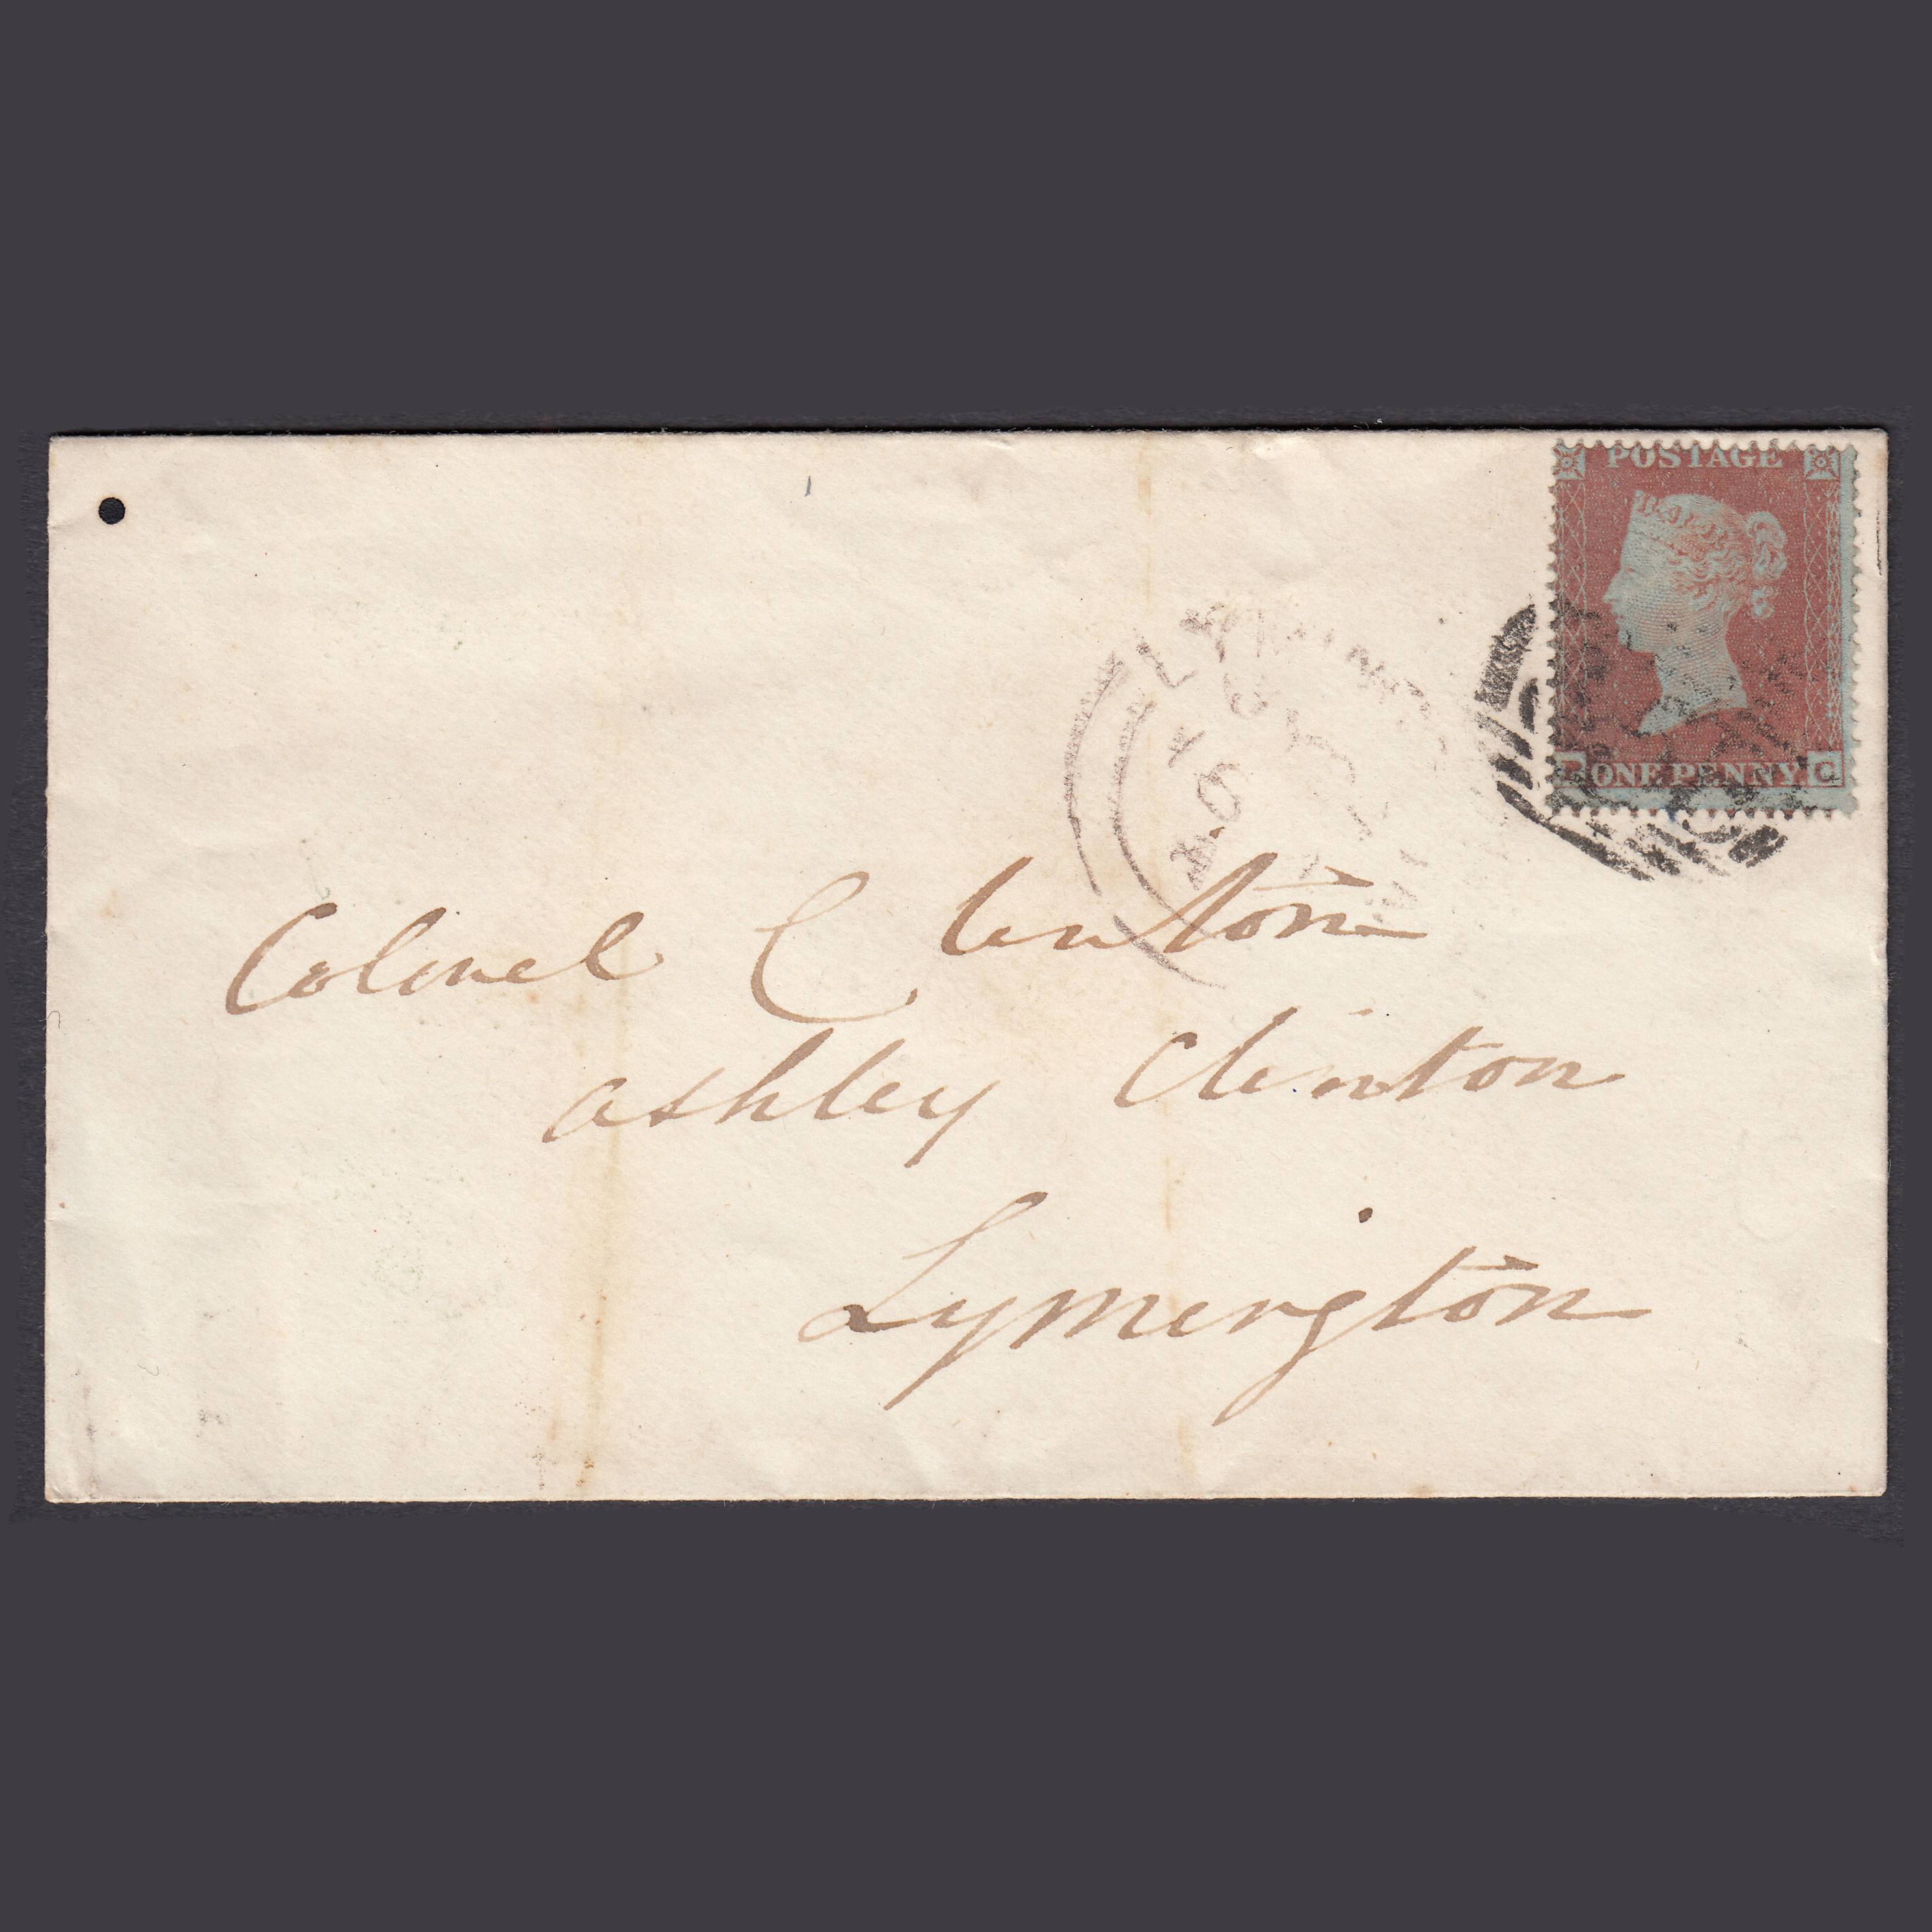 POSTAGE
ONE PENNY C
LYMING
Colonel Clinton
Ashley Clinton
Lymington